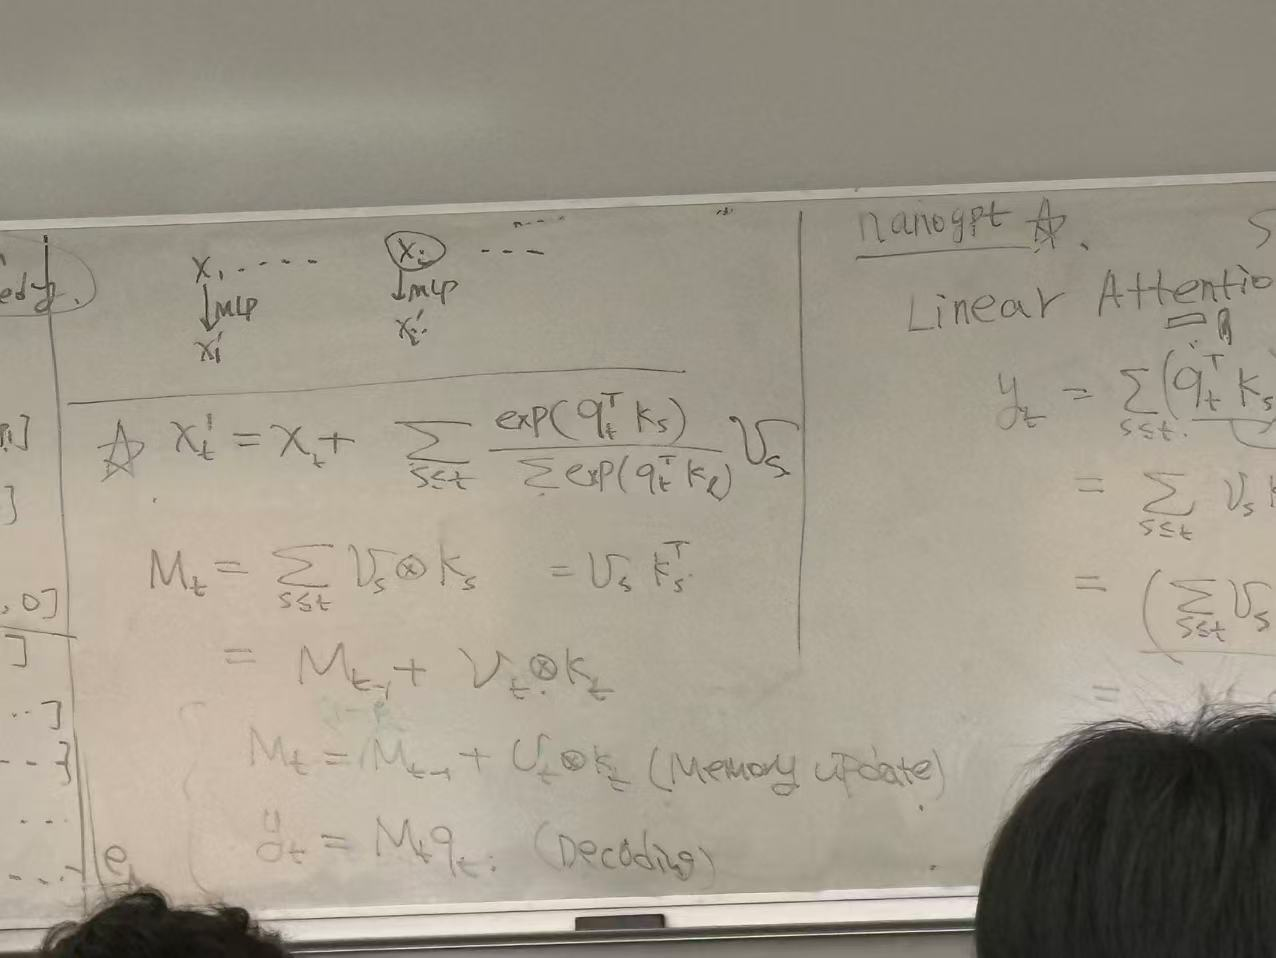 edy.
]
]
, 0]
]
..]
--}
...
e
x₁ ..... xᵢ ---
↓MLP ↓MLP
x₁' xᵢ'
☆ xₜ' = xₜ + Σ_{s≤t} exp(qₜᵀ kₛ) / Σ exp(qₜᵀ k_ℓ) vₛ
Mₜ = Σ_{s≤t} vₛ ⊗ kₛ = vₛ kₛᵀ
= Mₜ₋₁ + vₜ ⊗ kₜ
Mₜ = Mₜ₋₁ + vₜ ⊗ kₜ (Memory update)
yₜ = Mₜ qₜ. (Decoding)
nanogpt ☆. S
Linear Attentio
yₜ = Σ_{s≤t} (qₜᵀ kₛ)
= Σ_{s≤t} vₛ k
= (Σ_{s≤t} vₛ
=